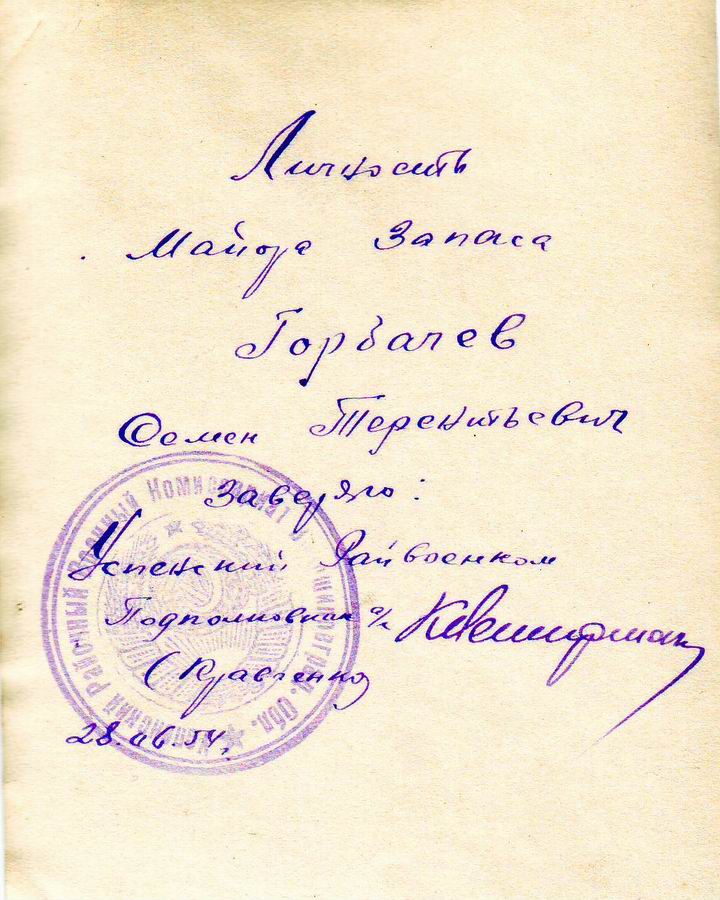 Личность
Майора Запаса
Горбачев
Семен Терентьевич
Заверяю:
Успенский Райвоенком
Подполковник а/с
(Кравченко)
28.06.54.
Районный Военный Комиссариат Обл.